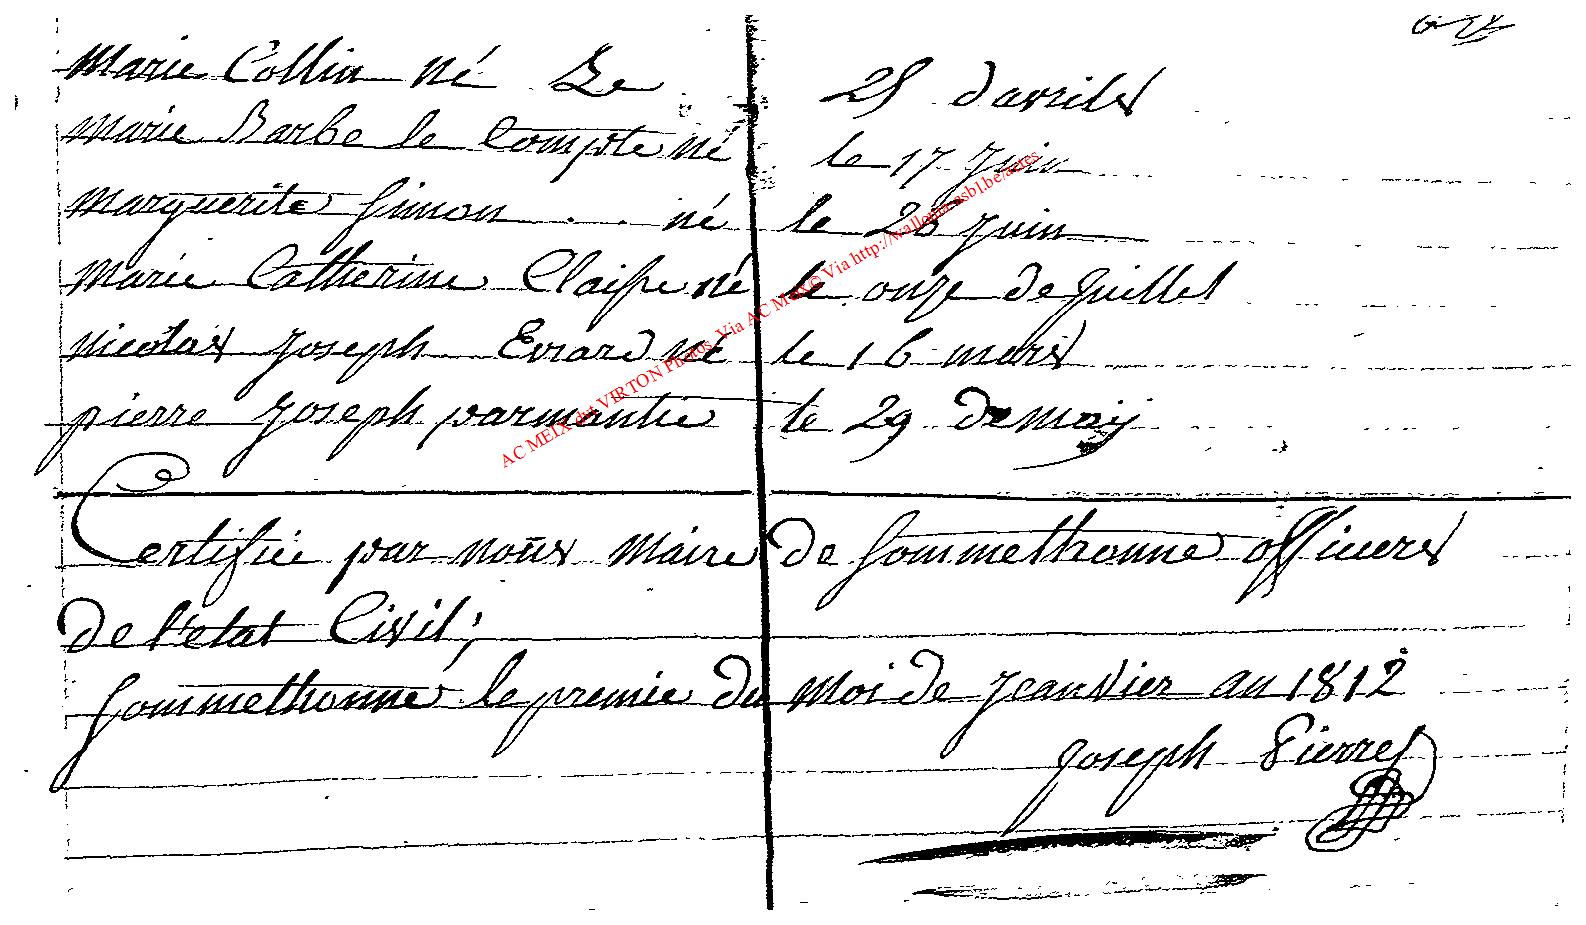 Marie Collin né Le 25 d'avrils
Marie Barbe le Compte né le 17 Juin
Marguerite Simon . . né le 26 Juin
Marie Catherine Claisse né le onze de Juillet
nicolas Joseph Evrard né le 16 mars
pierre Joseph parmantie le 29 de may
Certifiée par nous Maire de Sommethonne officiers
de l'etat Civil;
Sommethonne le premie du Moi de Jeanvier an 1812
Joseph Pierret
AC MEIX-dvt VIRTON Photos Via AC MEIX Via http://wallonia.asbl.be/actes